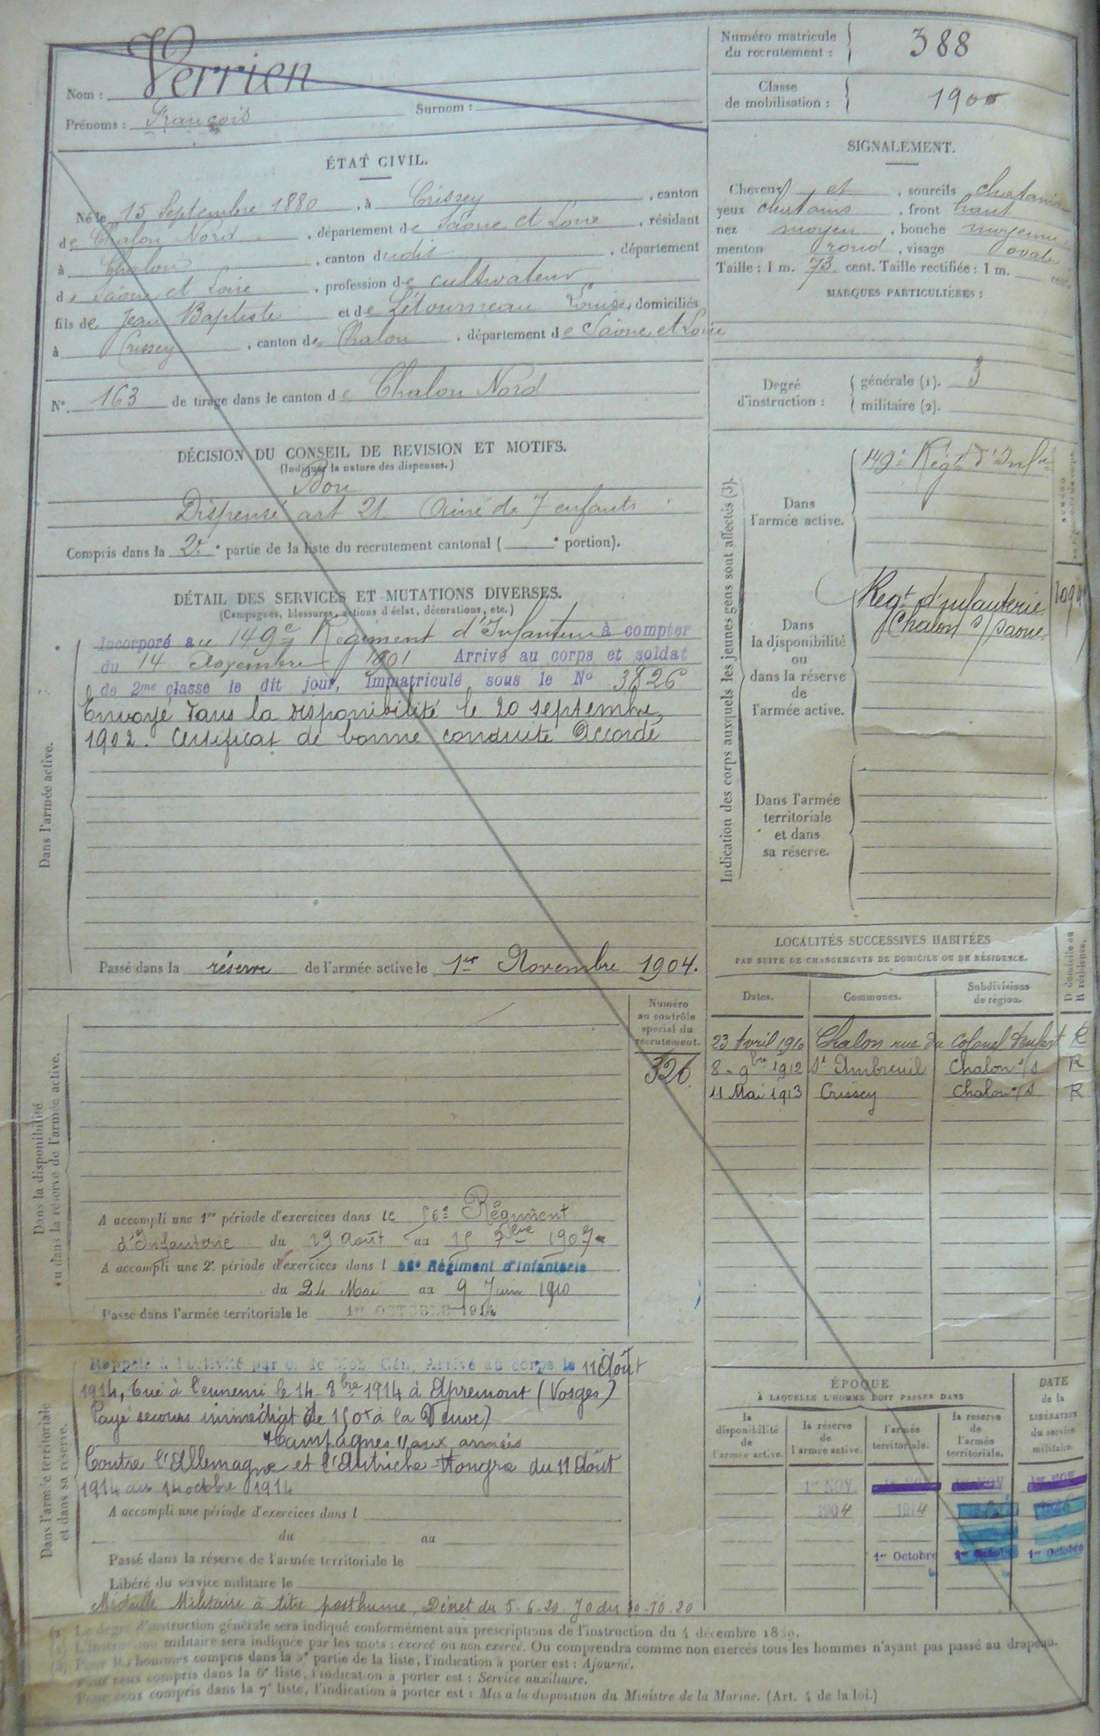 Nom : Verrien
Prénoms : François Surnom :
Numéro matricule du recrutement : 388
Classe de mobilisation : 1900
ÉTAT CIVIL.
Né le 15 Septembre 1880, à Crissey, canton
de Chalon Nord, département de Saône et Loire, résidant
à Chalon, canton dudit, département
de Saône et Loire, profession de cultivateur
fils de Jean Baptiste et de Létourneau Louise, domiciliés
à Crissey, canton de Chalon, département de Saône et Loire
N° 163 de tirage dans le canton de Chalon Nord
SIGNALEMENT.
Cheveux et, sourcils chatains
yeux chatains, front haut
nez moyen, bouche moyenne
menton rond, visage ovale
Taille : 1 m. 73 cent. Taille rectifiée : 1 m. cent.
MARQUES PARTICULIÈRES :
Degré d'instruction :
générale (1). 3
militaire (2).
DÉCISION DU CONSEIL DE REVISION ET MOTIFS.
(Indiquer la nature des dispenses.)
Bon
Dispensé art 21 Ainé de 7 enfants
Compris dans la 2e partie de la liste du recrutement cantonal ( e portion).
DÉTAIL DES SERVICES ET MUTATIONS DIVERSES.
(Campagnes, blessures, actions d'éclat, décorations, etc.)
Dans l'armée active.
Incorporé au 149e Régiment d'Infanterie à compter
du 14 Novembre 1901 Arrivé au corps et soldat
de 2me classe le dit jour, Immatriculé sous le No 3826
Envoyé dans la disponibilité le 20 septembre
1902. Certificat de bonne conduite Accordé
Passé dans la réserve de l'armée active le 1er Novembre 1904.
Indication des corps auxquels les jeunes gens sont affectés (3).
Dans l'armée active.
149e Régt d'Infie
Dans la disponibilité ou dans la réserve de l'armée active.
Régt d'infanterie
Chalon s/ Saone
Dans l'armée territoriale et dans sa réserve.
LOCALITÉS SUCCESSIVES HABITÉES
PAR SUITE DE CHANGEMENTS DE DOMICILE OU DE RÉSIDENCE.
Dates. Communes. Subdivisions de région. D domicile ou R résidence.
23 Avril 1910 Chalon rue du Colonel Denfert R
8 - 9bre 1912 St Ambreuil Chalon s/s R
11 Mai 1913 Crissey Chalon s/s R
Numéro au contrôle spécial du recrutement.
326
Dans la disponibilité ou dans la réserve de l'armée active.
A accompli une 1re période d'exercices dans le 56e Régiment
d'Infanterie du 19 Août au 15 7bre 1907
A accompli une 2e période d'exercices dans l 56e Régiment d'Infanterie
du 24 Mai au 9 Juin 1910
Passé dans l'armée territoriale le 1er OCTOBRE 1914
Dans l'armée territoriale et dans sa réserve.
Rappelé à l'activité par o. de Mob. Gén. Arrivé au corps le 11 Août
1914, Tué à l'ennemi le 14-8bre 1914 à Apremont (Vosges)
Payé secours immédiat de 150f à la Veuve)
Campagnes
Contre l'Allemagne et l'Autriche-Hongrie du 11 Août
1914 au 14 octobre 1914
A accompli une période d'exercices dans l
du au
Passé dans la réserve de l'armée territoriale le
Libéré du service militaire le
Médaille Militaire à titre posthume, Décret du 5.6.20. JO du 30-10.20
ÉPOQUE
À LAQUELLE L'HOMME DOIT PASSER DANS
DATE de la LIBÉRATION du service militaire.
la disponibilité de l'armée active.
la réserve de l'armée active.
l'armée territoriale.
la réserve de l'armée territoriale.
1er NOV 1904
1914
1er Octobre 1er Octobre 1er Octobre
(1) Le degré d'instruction générale sera indiqué conformément aux prescriptions de l'instruction du 4 décembre 1889.
(2) L'instruction militaire sera indiquée par les mots : exercé ou non exercé. On comprendra comme non exercés tous les hommes n'ayant pas passé au drapeau.
(3) Pour les hommes compris dans la 5e partie de la liste, l'indication à porter est : Ajourné.
Pour ceux compris dans la 6e liste, l'indication à porter est : Service auxiliaire.
Pour ceux compris dans la 7e liste, l'indication à porter est : Mis à la disposition du Ministre de la Marine. (Art. 4 de la loi.)